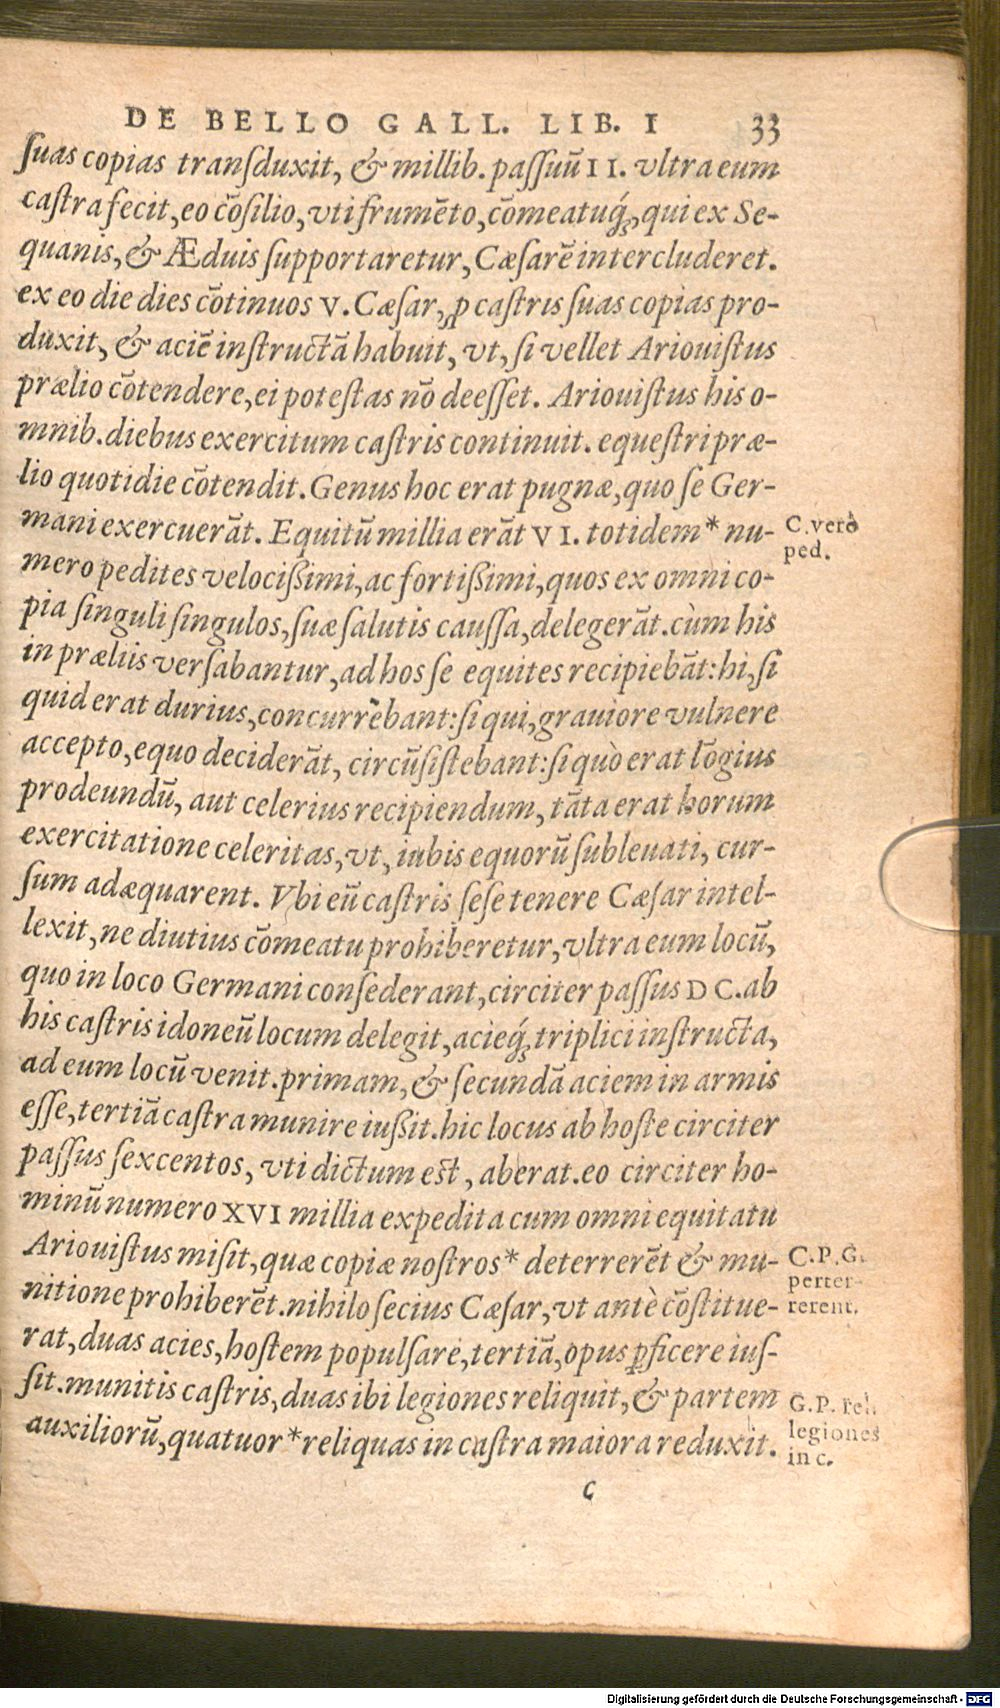 DE BELLO GALL. LIB. I 33
ſuas copias transduxit, & millib. paſſuū II. vltra eum
caſtra fecit, eo cōſilio, vti frumēto, cōmeatuq́;, qui ex Se-
quanis, & Æduis ſupportaretur, Cæſarē intercluderet.
ex eo die dies cōtinuos V. Cæſar, ꝓ caſtris ſuas copias pro-
duxit, & aciē inſtructā habuit, vt, ſi vellet Ariouiſtus
prælio cōtendere, ei poteſtas nō deeſſet. Ariouiſtus his o-
mnib. diebus exercitum caſtris continuit. equeſtri præ-
lio quotidie cōtendit. Genus hoc erat pugnæ, quo ſe Ger-
mani exercuerāt. Equitū millia erāt VI. totidem* nu-
mero pedites velocißimi, ac fortißimi, quos ex omni co-
pia ſinguli ſingulos, ſuæ ſalutis cauſſa, delegerāt. cùm his
in præliis verſabantur, ad hos ſe equites recipiebāt: hi, ſi
quid erat durius, concurrēbant: ſi qui, grauiore vulnere
accepto, equo deciderāt, circūſiſtebant: ſi quò erat lōgius
prodeundū, aut celerius recipiendum, tāta erat horum
exercitatione celeritas, vt, iubis equorū ſubleuati, cur-
ſum adæquarent. Vbi eū caſtris ſeſe tenere Cæſar intel-
lexit, ne diutius cōmeatu prohiberetur, vltra eum locū,
quo in loco Germani conſederant, circiter paſſus DC. ab
his caſtris idoneū locum delegit, acieq́; triplici inſtructa,
ad eum locū venit. primam, & ſecundā aciem in armis
eſſe, tertiā caſtra munire iußit. hic locus ab hoſte circiter
paſſus ſexcentos, vti dictum eſt, aberat. eo circiter ho-
minū numero XVI millia expedita cum omni equitatu
Ariouiſtus miſit, quæ copiæ noſtros* deterrerēt & mu-
nitione prohiberēt. nihilo ſecius Cæſar, vt antè cōſtitue-
rat, duas acies, hoſtem propulſare, tertiā, opus ꝑficere iuſ-
ſit. munitis caſtris, duas ibi legiones reliquit, & partem
auxiliorū, quatuor* reliquas in caſtra maiora reduxit.
c
C. verò
ped.
C.P.G.
perter-
rerent.
G.P. reli
legiones
in c.
Digitalisierung gefördert durch die Deutsche Forschungsgemeinschaft - DFG